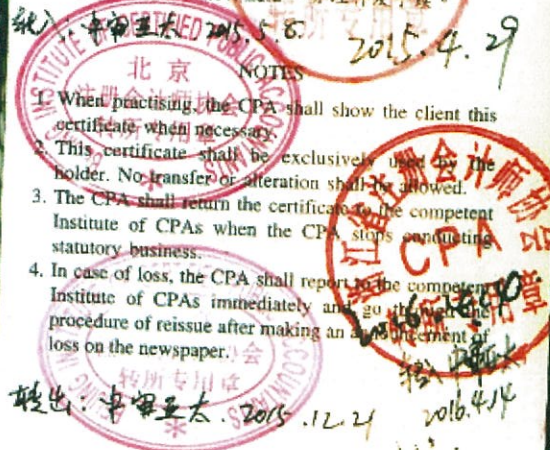 转入：中审亚太 2015.5.8
2015.4.29
转所专用章
北京
注册会计师协会
转所专用章
NOTES
1. When practising, the CPA shall show the client this
certificate when necessary.
2. This certificate shall be exclusively used by the
holder. No transfer or alteration shall be allowed.
3. The CPA shall return the certificate to the competent
Institute of CPAs when the CPA stops conducting
statutory business.
4. In case of loss, the CPA shall report to the competent
Institute of CPAs immediately and go through the
procedure of reissue after making an announcement of
loss on the newspaper.
浙江省注册会计师协会
CPA
转所专用章
转所专用章
转出：中审亚太. 2015.12.21
转入 中审亚太
2016.4.14